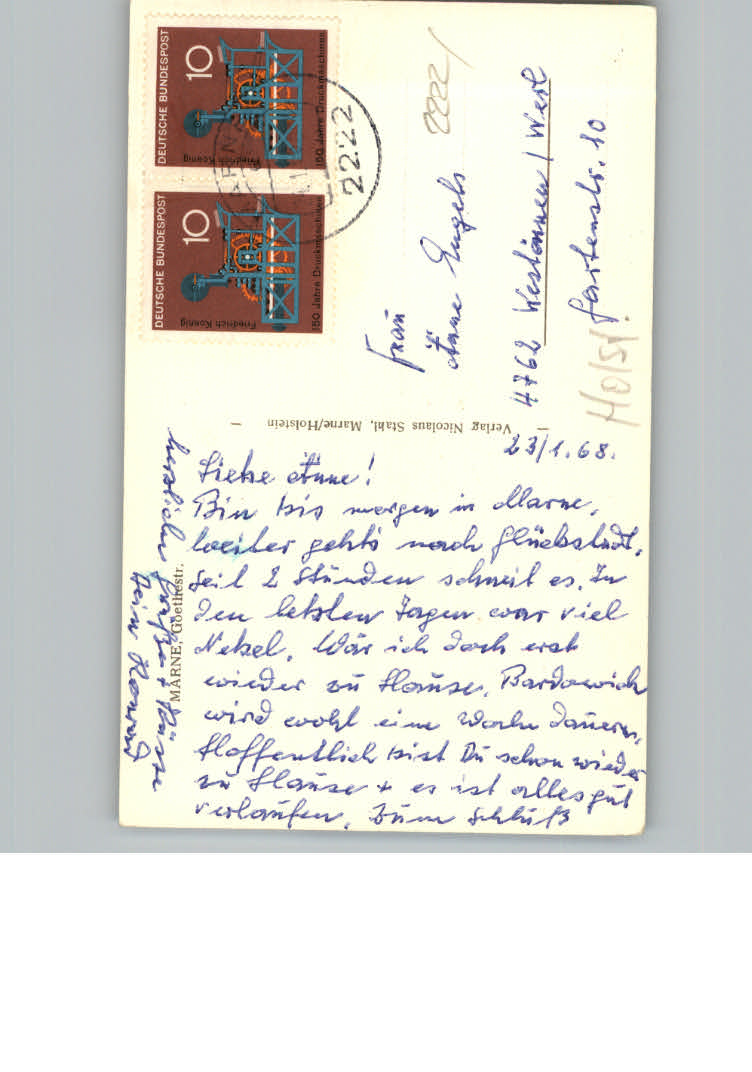 23/1.68.
Liebe Änne!
Bin bis morgen in Marne.
Weiter gehts nach Glückstadt.
Seit 2 Stunden schneit es. In
den letzten Tagen war viel
Nebel. Wär ich doch erst
wieder zu Hause. Bardowick
wird wohl eine Woche dauern.
Hoffentlich bist Du schon wieder
zu Hause + es ist alles gut
verlaufen. Zum Schluß
herzliche Grüße + Küsse
Dein
MARNE, Goethestr.
Verlag Nicolaus Stahl, Marne/Holstein
Frau
Änne Engels
4762 Westönnen / Werl
Gartenstr. 10
Holst.
2222
DEUTSCHE BUNDESPOST
10
Friedrich Koenig
150 Jahre Druckmaschinen
DEUTSCHE BUNDESPOST
10
Friedrich Koenig
150 Jahre Druckmaschinen
2222